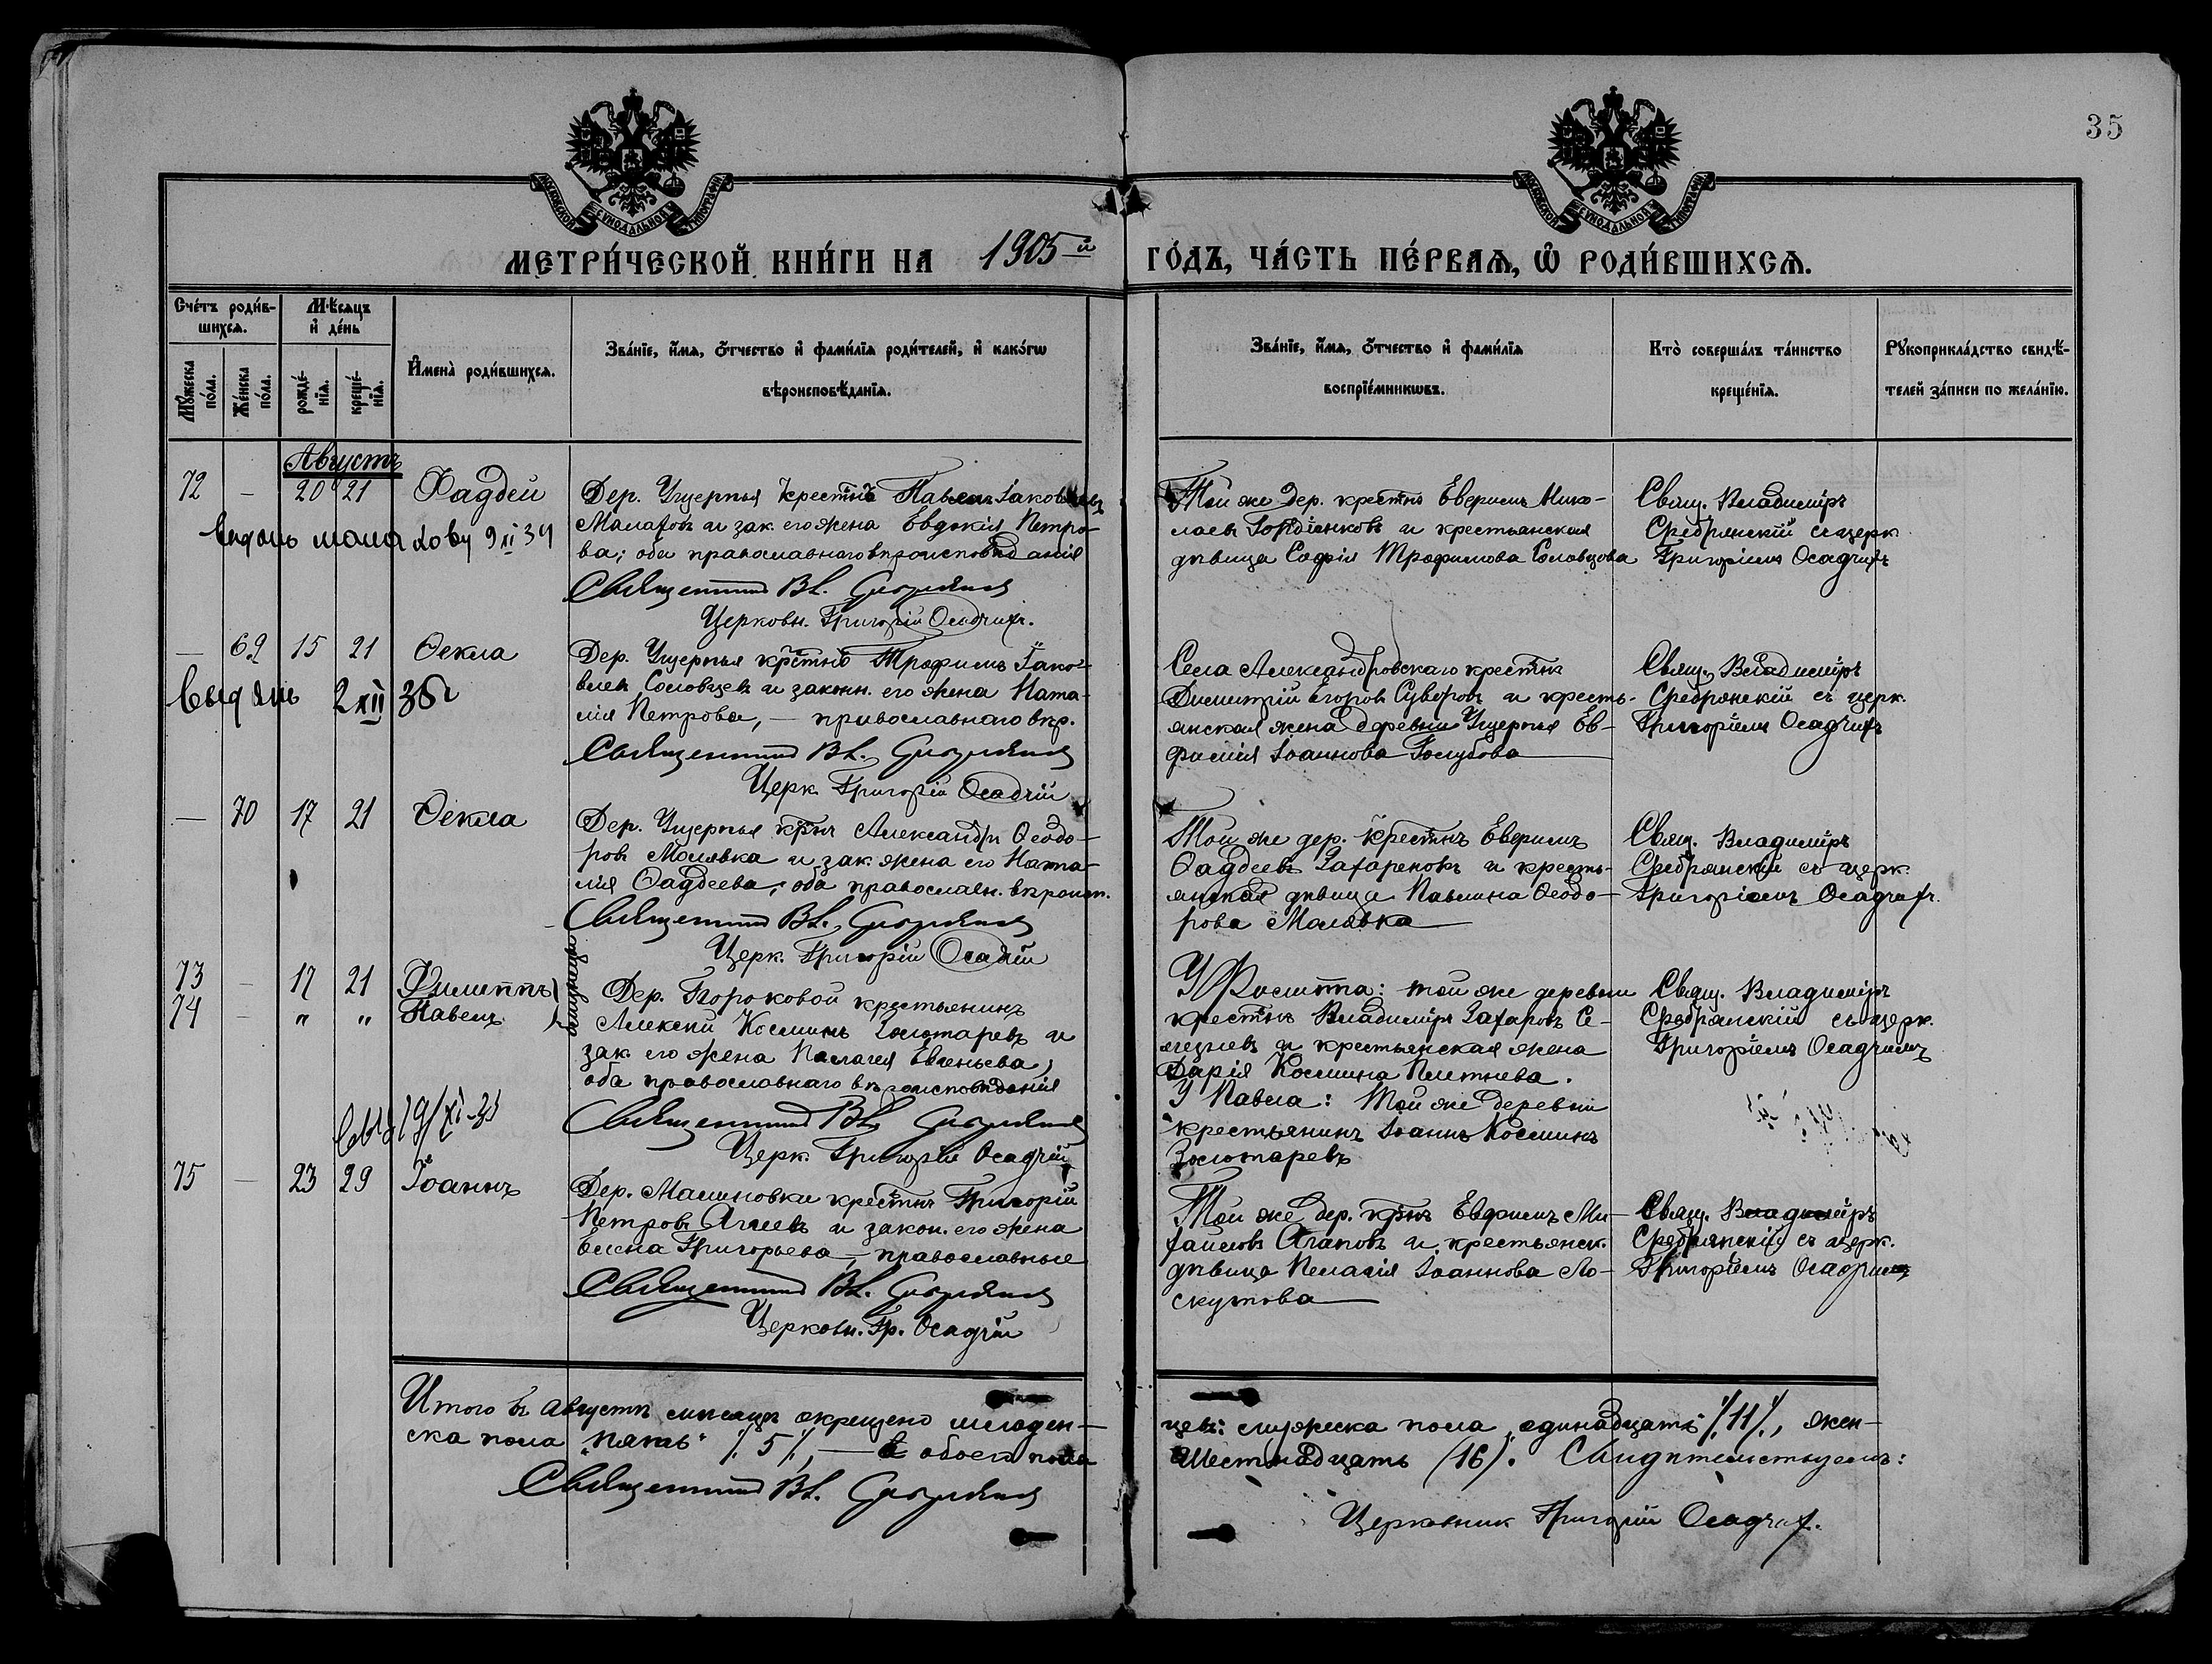 35
МОСКОВСКОЙ СѴНОДАЛЬНОЙ ТИПОГРАФІИ
МОСКОВСКОЙ СѴНОДАЛЬНОЙ ТИПОГРАФІИ
МЕТРИ́ЧЕСКОЙ КНИ́ГИ НА 1905й ГО́ДЪ, ЧА́СТЬ ПЕ́РВАѦ, Ѡ҆ РОДИ́ВШИХСѦ.
Сче́тъ роди́в-
шихсѧ.
Мѣсѧцъ
и҆ де́нь
Мꙋ́жеска
по́ла.
Же́нска
по́ла.
рожде́-
нїѧ.
креще́-
нїѧ.
И҆мена̀ роди́вшихсѧ.
Зва́нїе, и҆́мѧ, ѻ҆́тчество и҆ фами́лїѧ роди́телей, и҆ како́гѡ
вѣроисповѣ́данїѧ.
Зва́нїе, и҆́мѧ, ѻ҆́тчество и҆ фами́лїѧ
воспрїе́мникѡвъ.
Кто̀ соверша́лъ та́инство
креще́нїѧ.
Рꙋкоприкла́дство свидѣ́-
телей за́писи по жела́нїю.
Августъ
72 — 20 21 Фаддей
Дер. Ущерпья крестнъ Павелъ Іаковлевъ
Малаховъ и зак. его жена Евдокія Петро-
ва; оба православнаго вѣроисповѣданія
Священникъ Вл. Сребрянскій
Церковн. Григорій Осадчихъ.
Той же дер. крестнъ Ефимъ Нико-
лаевъ Гордіенковъ и крестьянская
дѣвица Софія Трофимова Соловцова
Свящ. Владиміръ
Сребрянскій съ церк.
Григоріемъ Осадчихъ
9 XII 34
— 69 15 21 Ѳекла
Дер. Ущерпья крестнъ Трофимъ Іако-
влевъ Соловцевъ и законн. его жена Ната-
лія Петрова, — православнаго вѣр.
Священникъ Вл. Сребрянскій
Церк. Григорій Осадчій
Села Александровскаго крестнъ
Димитрій Егоровъ Суворовъ и кресть-
янская жена деревни Ущерпья Ев-
фимія Іоаннова Голубова
Свящ. Владиміръ
Сребрянскій съ церк.
Григоріемъ Осадчихъ
Выдань 2 XII 35г
— 70 17 21 Ѳекла
Дер. Ущерпья крнъ Александръ Ѳеодо-
ровъ Малявка и зак. жена его Ната-
лія Фаддеева; оба православн. вѣроисп.
Священникъ Вл. Сребрянскій
Церк. Григорій Осадчій
Той же дер. крестнъ Ефимъ
Фаддеевъ Захаренковъ и кресть-
янская дѣвица Павлина Ѳеодо-
рова Малявка
Свящ. Владиміръ
Сребрянскій съ церк.
Григоріемъ Осадчихъ.
73 — 17 21 Филиппъ
74 — " " Павелъ
Дер. Пороковой крестьянинъ
Алексій Косминъ Золотаревъ и
зак. его жена Пелагея Евгеньева,
оба православнаго вѣроисповѣданія
Священникъ Вл. Сребрянскій
Церк. Григорій Осадчій
У Филиппа: той же деревни
крестнъ Владиміръ Захаровъ Се-
и крестьянская жена
Дарія Космина Плетнева.
У Павла: Той же деревни
крестьянинъ Іоаннъ Косминъ
Золотаревъ
Свящ. Владиміръ
Сребрянскій съ церк.
Григоріемъ Осадчимъ
75 — 23 29 Іоаннъ
Дер. Малиновки крестнъ Григорій
Петровъ Агѣевъ и закон. его жена
Елена Григорьева, — православные
Священникъ Вл. Сребрянскій
Церковн. Гр. Осадчій
Той же дер. крнъ Евфимъ Ми-
хаиловъ Агаповъ и крестьянск.
дѣвица Пелагія Іоаннова Ло-
скутова
Свящ. Владиміръ
Сребрянскій съ церк.
Григоріемъ Осадчимъ
Итого въ Августѣ мѣсяцѣ окрещено младен-
цевъ: мужеска пола „одинадцать" /11/, жен-
ска пола „пять" /5/, — а обоего пола
Шестнадцать (16). Свидѣтельствуемъ:
Священникъ Вл. Сребрянскій
Церковник Григорій Осадчих.